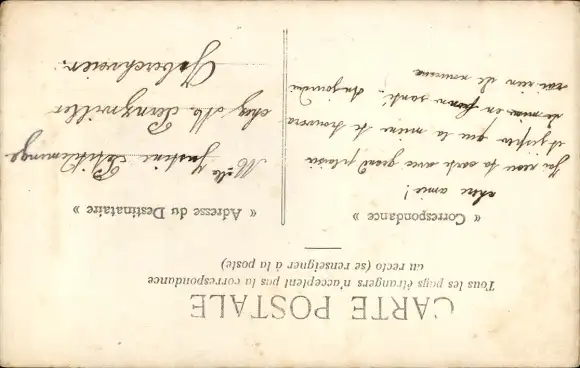 CARTE POSTALE
Tous les pays étrangers n'acceptent pas la correspondance
au recto (se renseigner à la poste)
« Correspondance »
« Adresse du Destinataire »
chère amie!
J'ai reçu ta carte avec grand plaisir
et j'espère que la mienne te trouvera
en bonne santé. Aujourd'hui
rien de nouveau
Mlle Justine
chez Mr